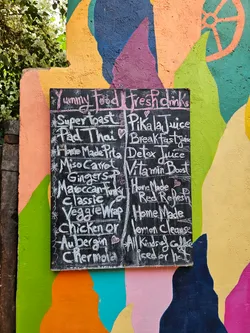 Yummy Food
Super Toast
Pad Thai
Home Made Pita
Miso Carrot
Ginger
Maroccan
Classic
Veggie Wrap
Chicken or
Aubergin
Chermola
Fresh drinks
Pikala Juice
Breakfast Juice
Detox Juice
Vitamin Boost
Home Made
Red Refresh
Home Made
Lemon Cleanse
All Kinds of Coffee
Iced or